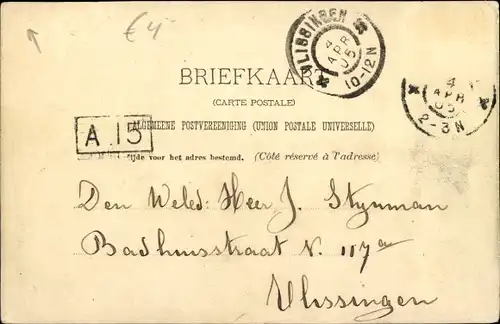 € 4
VLISSINGEN
4
APR
05
10-12N
BRIEFKAART
(CARTE POSTALE)
4
APR
05
2-3N
ALGEMEENE POSTVEREENIGING (UNION POSTALE UNIVERSELLE)
A 15
Zijde voor het adres bestemd. (Côté réservé à l'adresse)
Den Weled: Heer J. Stynman
Badhuisstraat N. 117a
Vlissingen